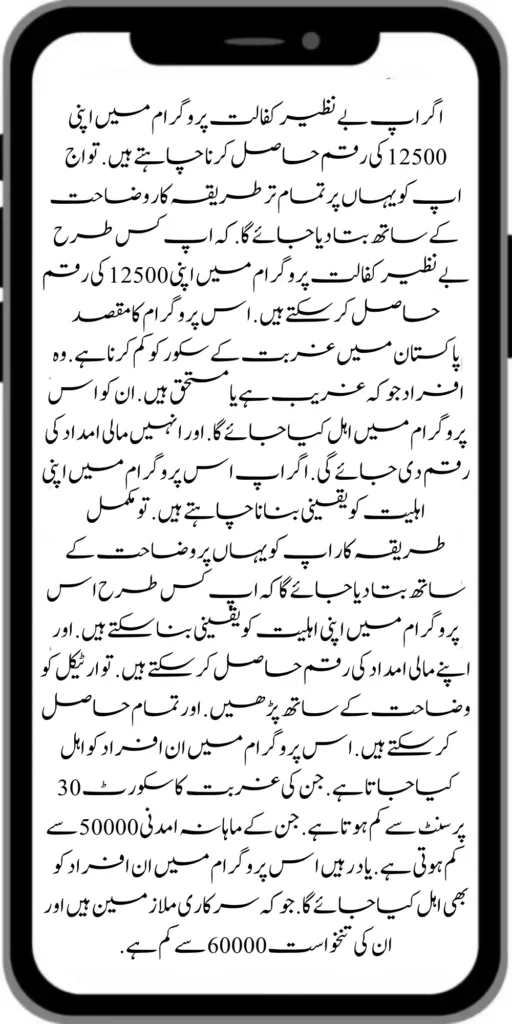 اگر اپ بے نظیر کفالت پروگرام میں اپنی
12500 کی رقم حاصل کرنا چاہتے ہیں. تو اج
اپ کو یہاں پر تمام تر طریقہ کار وضاحت
کے ساتھ بتا دیا جائے گا. کہ اپ کس طرح
بے نظیر کفالت پروگرام میں اپنی 12500 کی رقم
حاصل کر سکتے ہیں. اس پروگرام کا مقصد
پاکستان میں غربت کے سکور کو کم کرنا ہے. وہ
افراد جو کہ غریب ہے یا مستحق ہیں. ان کو اس
پروگرام میں اہل کیا جائے گا. اور انہیں مالی امداد کی
رقم دی جائے گی. اگر اپ اس پروگرام میں اپنی
اہلیت کو یقینی بنانا چاہتے ہیں. تو مکمل
طریقہ کار اپ کو یہاں پر وضاحت کے
ساتھ بتا دیا جائے گا کہ اپ کس طرح اس
پروگرام میں اپنی اہلیت کو یقینی بنا سکتے ہیں. اور
اپنے مالی امداد کی رقم حاصل کر سکتے ہیں. تو ارٹیکل کو
وضاحت کے ساتھ پڑھیں. اور تمام حاصل
کر سکتے ہیں. اس پروگرام میں ان افراد کو اہل
کیا جاتا ہے. جن کی غربت کا سکورٹ 30
پرسنٹ سے کم ہوتا ہے. جن کے ماہانہ امدنی 50000 سے
کم ہوتی ہے. یاد رہیں اس پروگرام میں ان افراد کو
بھی اہل کیا جائے گا. جو کہ سرکاری ملازمین ہیں اور
ان کی تنخواست 60000 سے کم ہے.